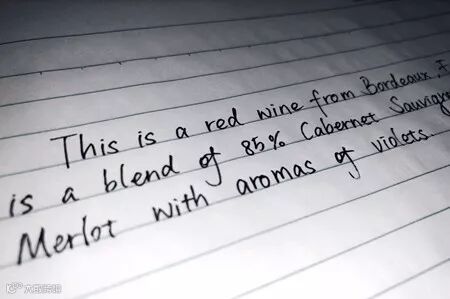 This is a red wine from Bordeaux,
is a blend of 85% Cabernet
Merlot with aromas of violets.